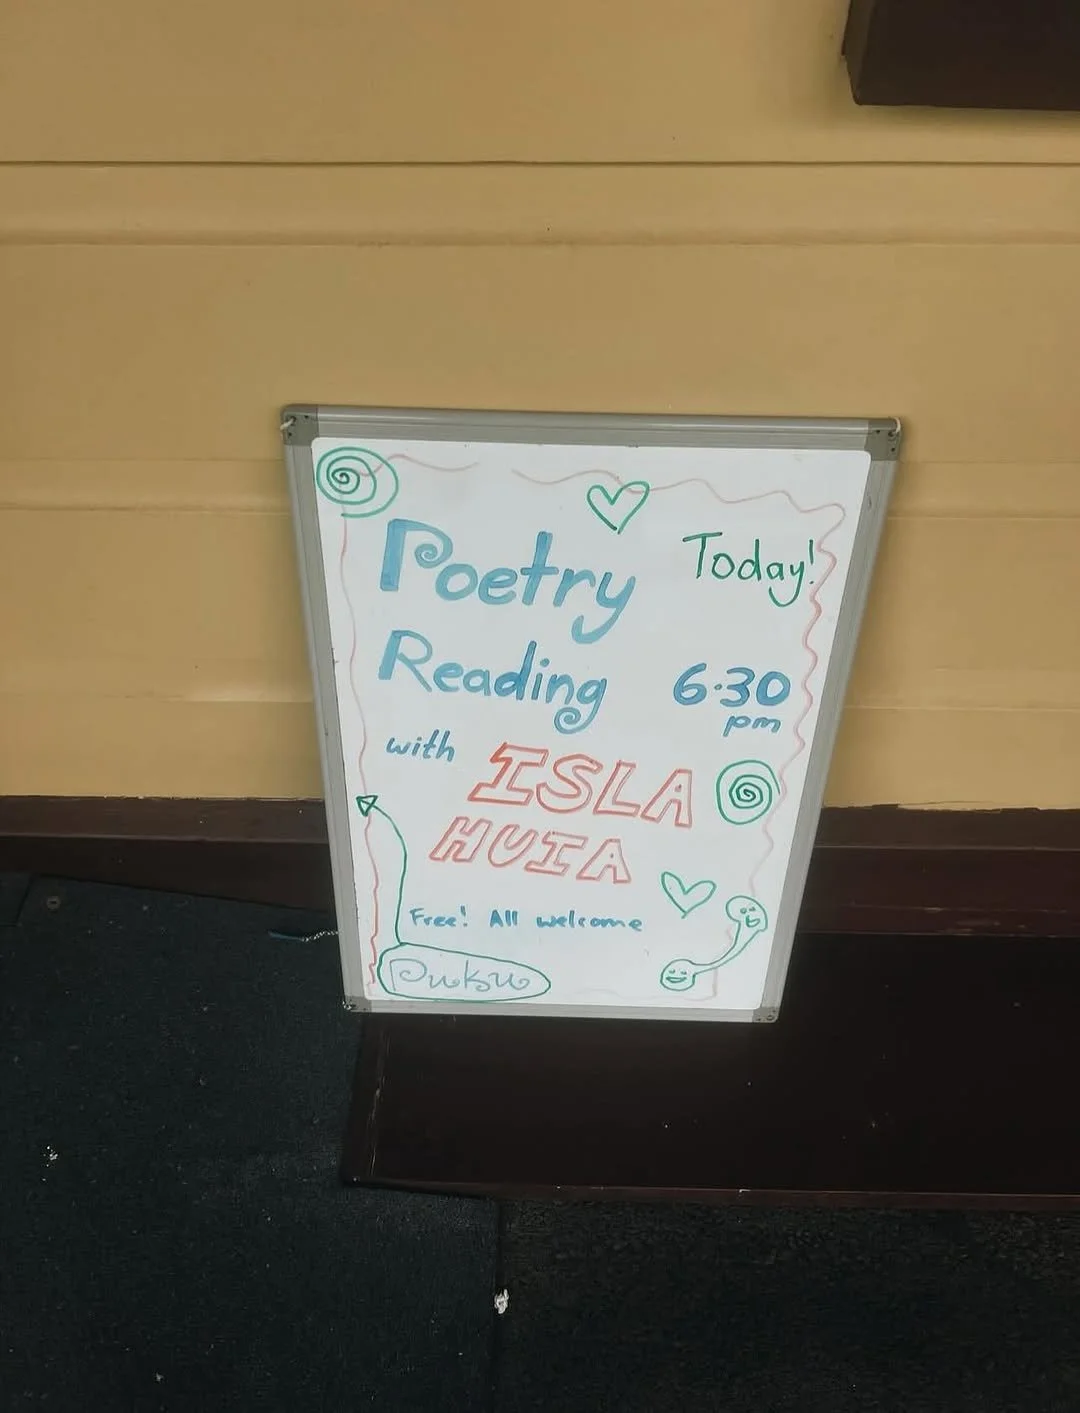 Poetry
Today!
Reading
6.30
pm
with ISLA
HUIA
Free! All welcome
Puku